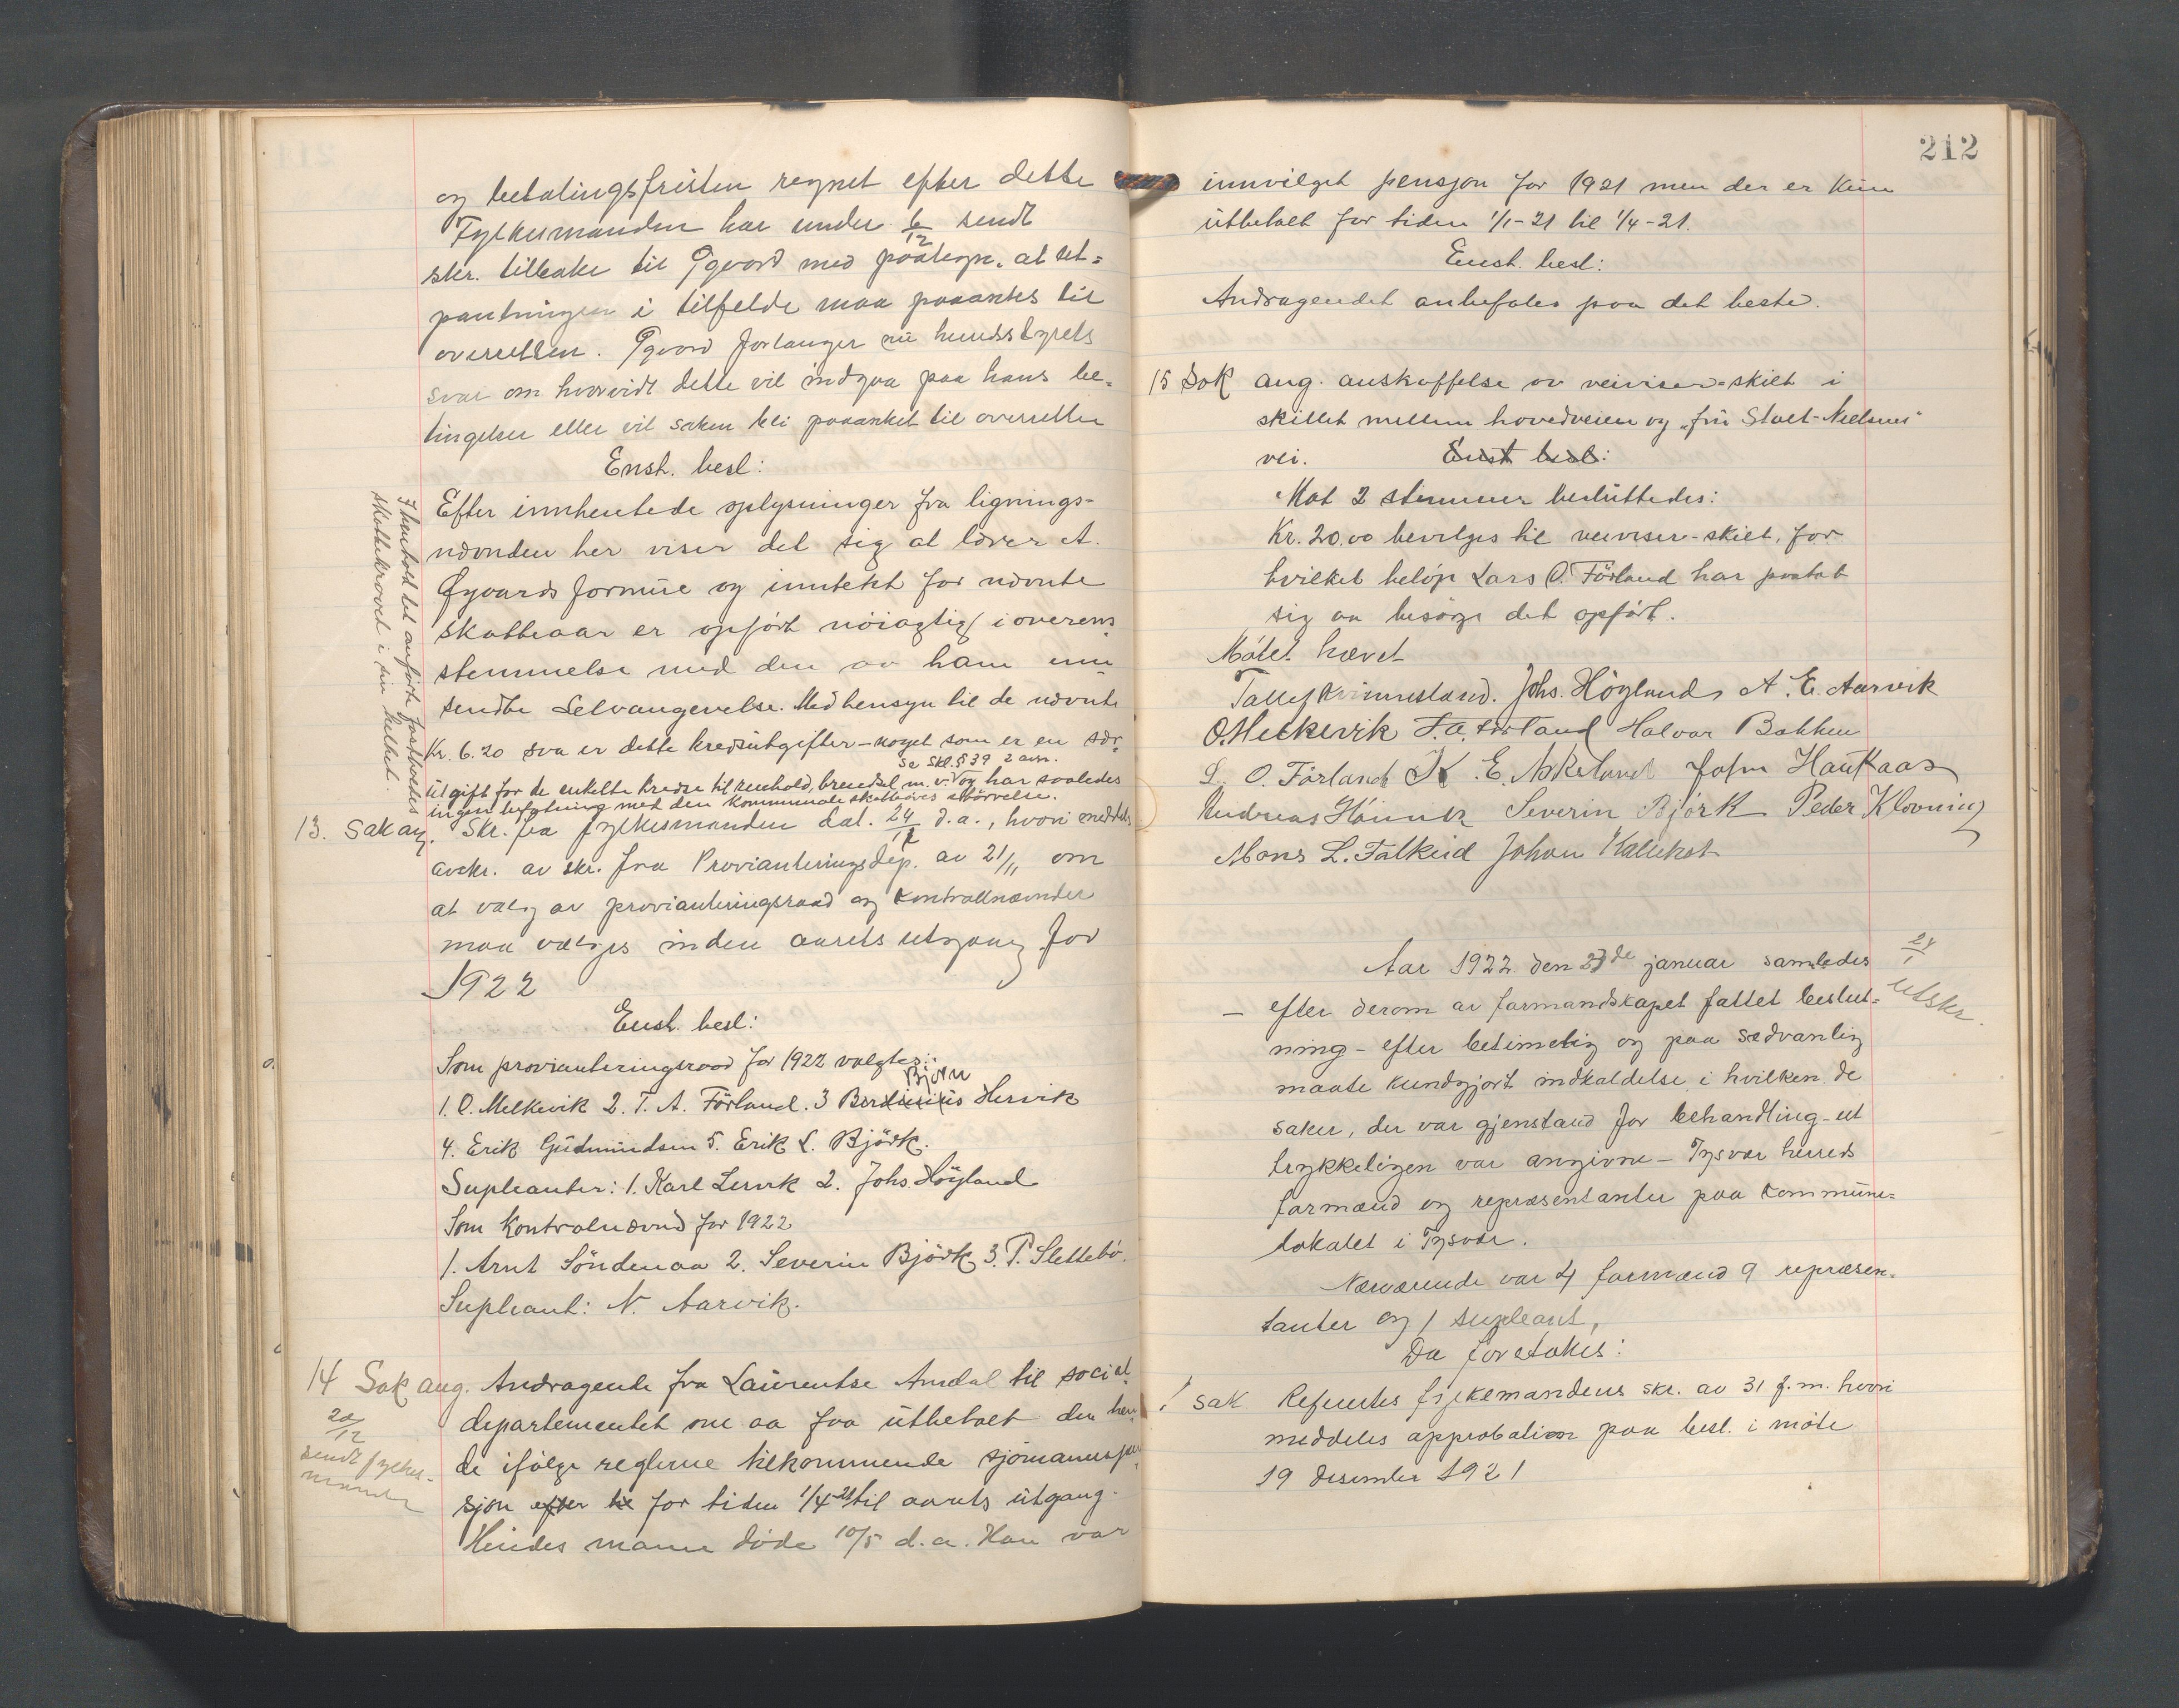 og betalingsfristen regnet efter dette
Fylkesmanden har under 6/12 sendt
skr. tilbake til Øgvard med paategn. at ut-
pantningen i tilfelde maa paaankes til
overretten. Øgvard forlanger nu herredsstyrets
svar om hvorvidt dette vil indgaa paa hans be-
tingelser eller vil saken bli paaanket til overretten
Enst. besl:
Efter innhentede oplysninger fra lignings-
nævnden her viser det sig at lærer A.
Øgvards formue og inntekt for nævnte
skatteaar er opført nöiagtig i overens-
stemmelse med den av ham inn
sendte Selvangevelse. Med hensyn til de nævnte
Kr. 6.20 saa er dette kredsutgifter - noget som er en sær-
se skl. § 39 2 avsn.
utgift for de enkelte kredse til renhold, brendsel m. v. og har saaledes
ingen befatning med den kommunale skatteöres störrelse.
I henhold til anförte fastholdes
skattekravet i sin helhet.
13. Sak ang. Skr. fra fylkesmanden dat. 24/12 d.a., hvori meddeles
avskr. av skr. fra Provianteringsdep. av 21/11 om
at valg av provianteringsraad og kontrollnævnder
maa vælges inden aarets utgang for
1922
Enst. besl:
Som provianteringsraad for 1922 valgtes:
Bjørn
1. O. Melkevik 2. T. A. Förland. 3 Berdinius Hervik
4. Erik Gudmundsen 5. Erik L. Björk.
Supleanter: 1. Karl Lervik 2. Johs. Höyland
Som Kontrolnævnd for 1922
1. Arnt Söndenaa 2. Severin Björk 3. P. Slettebö.
Supleant: N. Aarvik.
14 Sak ang. Andragende fra Laurentse Amdal til social-
20/12
sendt fylkes-
manden
departementet om aa faa utbetalt den hen-
de ifölge reglerne tilkommende sjömannspen-
sjon efter til for tiden 1/4-21 til aarets utgang.
Hendes mann döde 10/5 d.a. Han var
212
innvilget pensjon for 1921 men der er kun
utbetalt for tiden 1/1-21 til 1/4-21.
Enst. besl:
Andragendet anbefales paa det beste.
15 Sak ang. anskaffelse av veiviser-skilt i
skillet mellem hovedveien og "fru Stolt-Nielsens"
vei. Enst besl:
Mot 2 stemmer besluttedes:
Kr. 20.00 bevilges til veiviser-skilt, for
hvilket belöp Lars O. Förland har paatat
sig aa besörge det opfört.
Mötet hævet
Tallef Kvinnesland. Johs. Höyland A. E. Aarvik
O. Melkevik T. A. Förland Halvar Bakken
L. O. Förland K. E. Askeland John Haukaas
Andreas Severin Björk Peder Klovning
Mons L. Falkeid Johan
Aar 1922 den 23de januar samledes
24/1
utskr.
- efter derom av formandskapet fattet beslut-
ning - efter betimelig og paa sedvanlig
maate kundgjort indkaldelse i hvilken de
saker, der var gjenstand for behandling - ut
trykkeligen var angivne - Tysvær herreds
formænd og repræsentanter paa kommune-
lokalet i Tysvær.
Nærværende var 4 formænd 9 repræsen-
tanter og 1 supleant,
Da foretokes:
1 sak Refertes fylkemandens skr. av 31 f.m. hvori
meddeles approbation paa besl. i møte
19 desember 1921